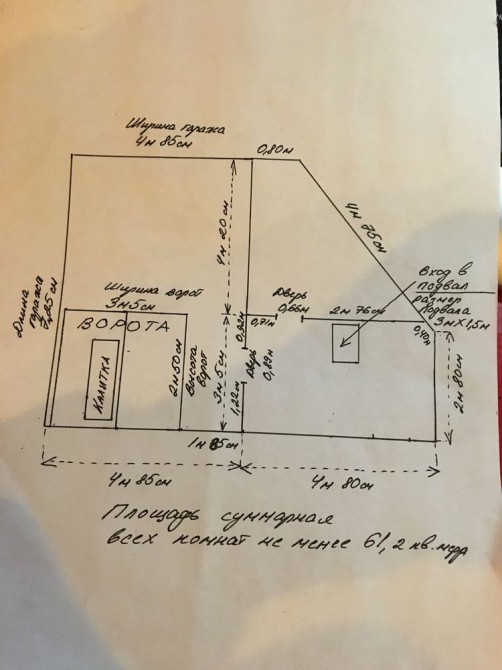 Ширина гаража
4м 85см
0,80м
4м 20см
4м 75см
Вход в
подвал
размер
подвала
3м×1,5м
Длина
гаража
7,25см
Ширина ворот
3м 5см
ВОРОТА
КАЛИТКА
2м 50см
Высота
ворот
3м 5см
0,71м
Дверь
0,66м
2м 76см
0,40м
Дверь
0,89м
1,22см
2м 80см
1м 85см
4м 85см
4м 80см
Площадь суммарная
всех комнат не менее 61,2 кв.